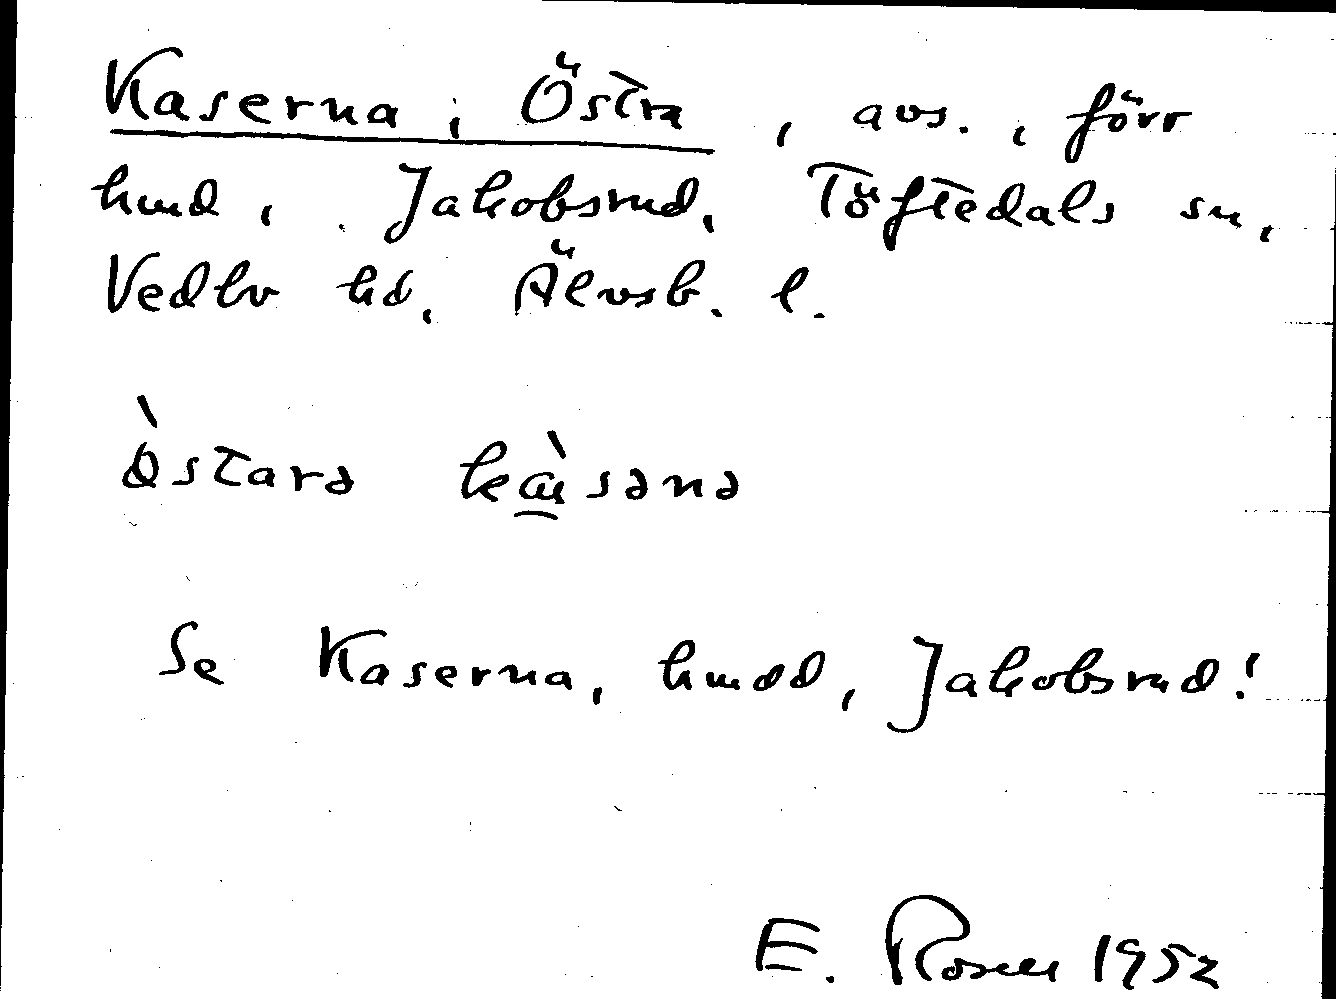 Kaserna, Östra, avs., förr
hmd, Jakobsrud, Töftedals sn,
Vedbo hd, Älvsb. l.
östarə kæ̀sənə
Se Kaserna, hmd, Jakobsrud!
E. Rosell 1952